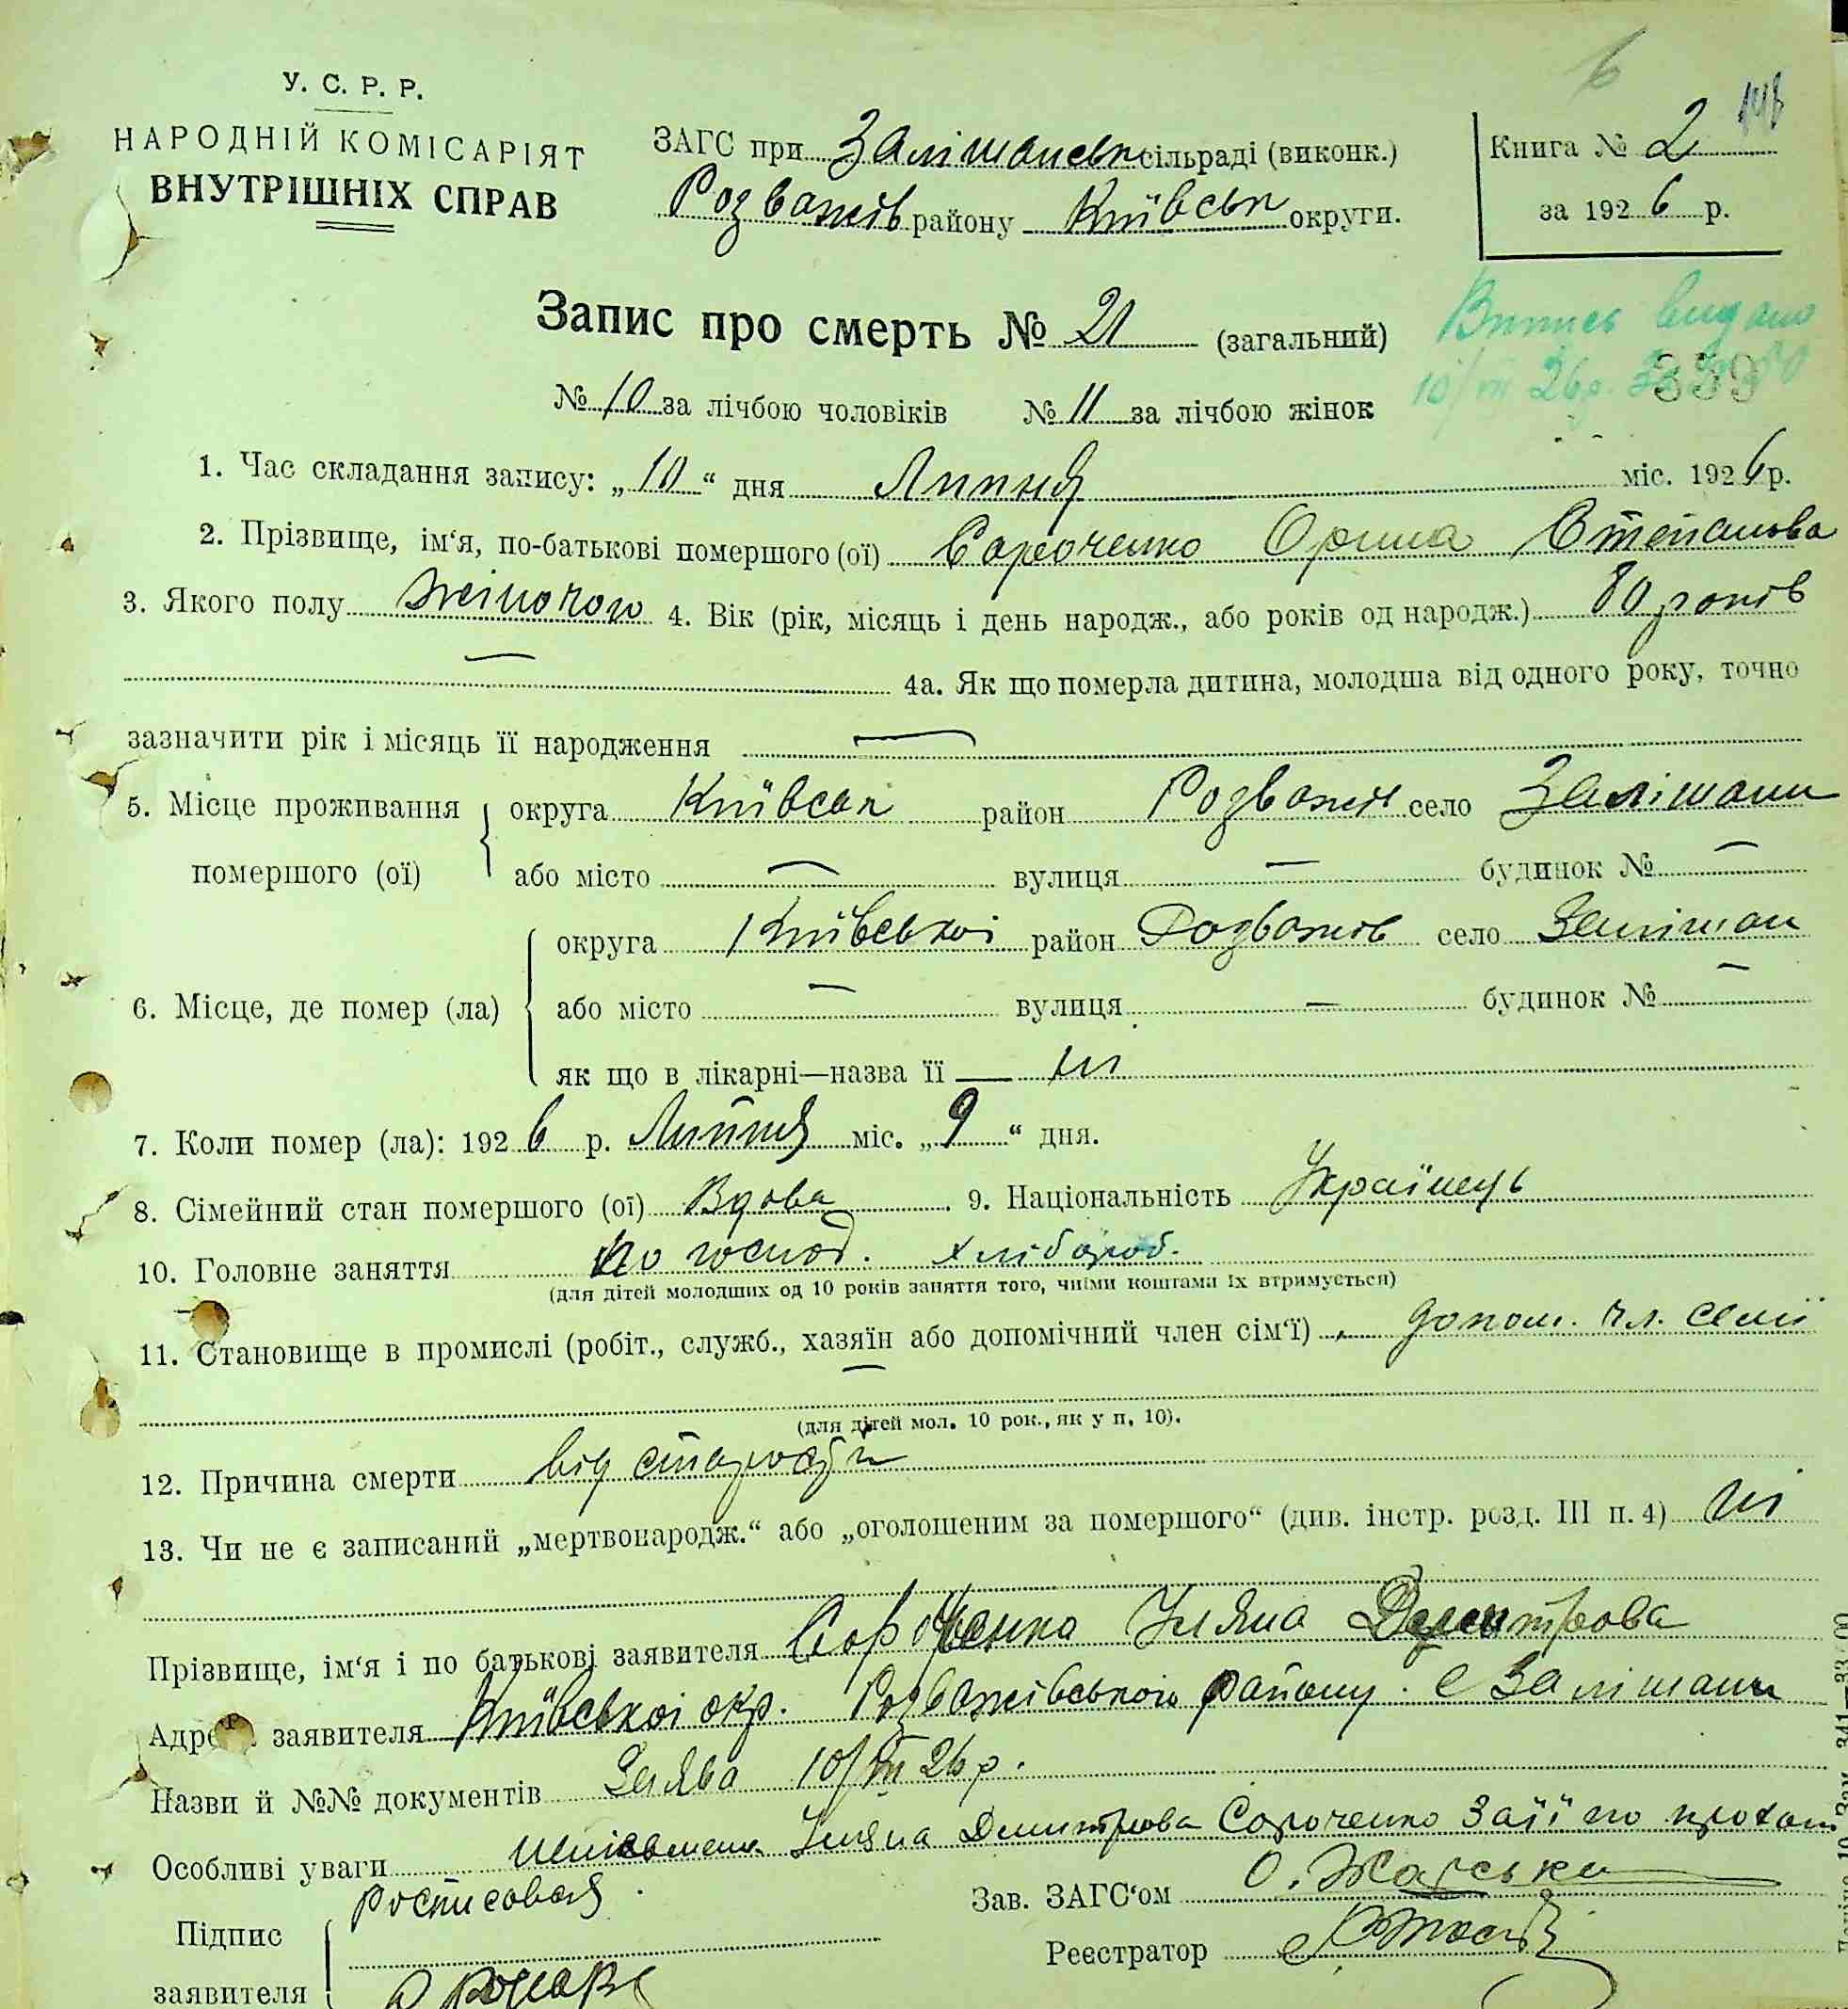 6 148
У. С. Р. Р.
НАРОДНІЙ КОМІСАРІЯТ
ВНУТРІШНІХ СПРАВ
ЗАГС при Залішанськ сільраді (виконк.)
Розважів району Київськ округи.
Книга № 2
за 1926 р.
Запис про смерть № 21 (загальний)
Випись видано
10/VII 26р. 339
№ 10 за лічбою чоловіків № 11 за лічбою жінок
1. Час складання запису: „10“ дня Липня міс. 1926 р.
2. Прізвище, ім‘я, по-батькові помершого (ої) Сороченко Орина Степанова
3. Якого полу жіночого 4. Вік (рік, місяць і день народж., або років од народж.) 80 років
— 4а. Як що померла дитина, молодша від одного року, точно
зазначити рік і місяць її народження —
5. Місце проживання помершого (ої) округа Київськ район Розважів село Залішани
або місто — вулиця — будинок № —
6. Місце, де помер (ла) округа Київської район Розважів село Залішан
або місто — вулиця — будинок № —
як що в лікарні—назва її — ні
7. Коли помер (ла): 1926 р. Липня міс. „9“ дня.
8. Сімейний стан помершого (ої) Вдова. 9. Національність Українець
10. Головне заняття по господ. хлібороб.
(для дітей молодших од 10 років заняття того, чиїми коштами їх втримується)
11. Становище в промислі (робіт., служб., хазяїн або допомічний член сім‘ї) допом. чл. семії
—
(для дітей мол. 10 рок., як у п. 10).
12. Причина смерти від старости
13. Чи не є записаний „мертвонародж.“ або „оголошеним за помершого“ (див. інстр. розд. III п. 4) ні
Прізвище, ім‘я і по батькові заявителя Сороченко Уляна Дементрова
Адреса заявителя Київської окр. Розважівського району. с Залішани
Назви й №№ документів Заява 10/VII 26р.
Особливі уваги Уляна Дмитрова Сороченко за її по прохан
Ростисовался
Зав. ЗАГС‘ом О. Жарська
Підпис
заявителя
Реєстратор